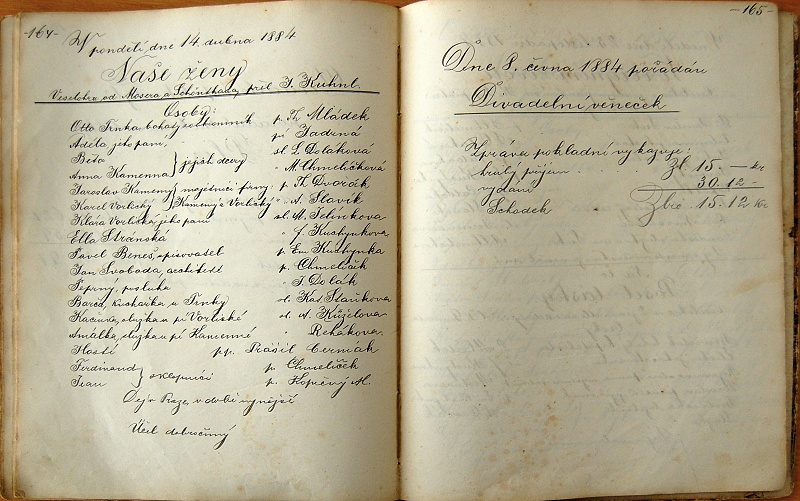 -164-
V pondělí, dne 14. dubna 1884
Naše ženy
Veselohra od Mosera a Schönthana, přel. J. Kühnl.
Osoby:
Otto Trnka, bohatý soukromník p. Th. Mládek
Adéla, jeho paní, pí Zadrná
Běta } jejich dcery sl. L. Doláková
Anna Kamenná " M. Chmelíčková
Jaroslav Kamenný } majetníci firmy: p. Th. Dvořák
Karel Vorlický } Kamenný a Vorlický " A. Slavík
Klára Vorlická, jeho paní sl. M. Jelínkova
Ella Stránská " J. Kustynkova
Pavel Beneš, spisovatel p. Em. Kustynka
Jan Svoboda, architekt p. Chmelíček
Peprný, posluha " T. Dolák
Barča, kuchařka u Trnky sl. Kat. Staňkova
Kačena, služka u pí Vorlické sl. A. Kůželova
Amálka, služka u pí Kamenné " Řehákova
Hosté pp. Prášil Čermák
Ferdinand } sklepníci p. Chmelíček
Ivan p. Kopečný Al.
Děj v Praze, v době nynější
Účel dobročinný
-165-
Dne 8. června 1884 pořádán
Divadelní věneček
Zpráva pokladní vykazuje:
hrubý příjem Zl. 15. — kr
vydání 30. 12 -
Schodek Zl. 15. 12 kr